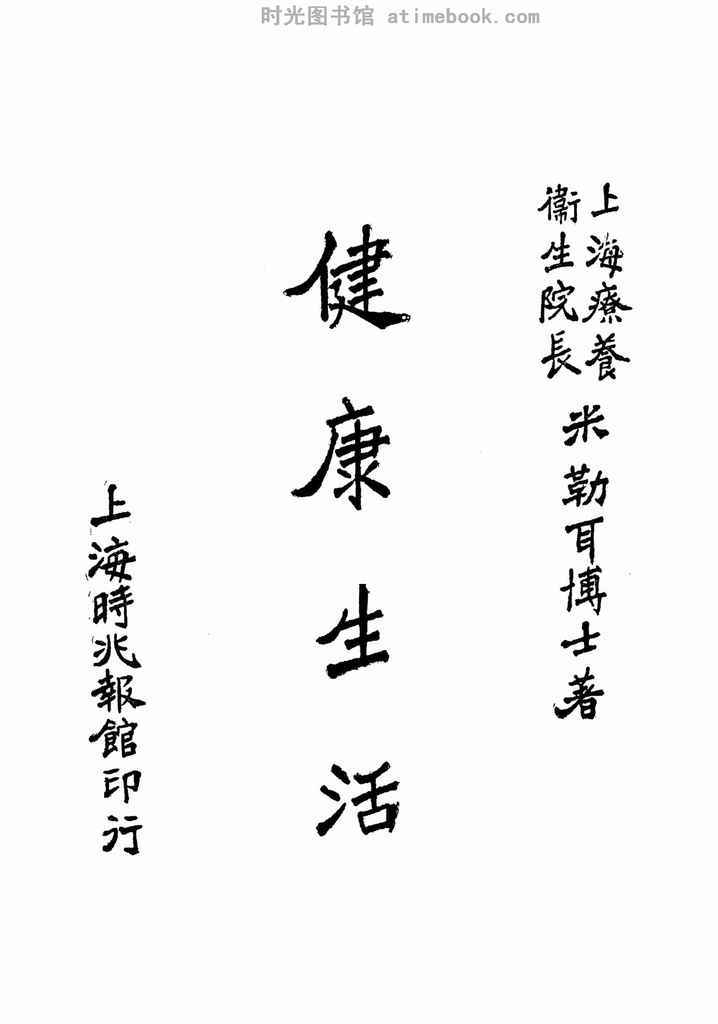 时光图书馆 atimebook.com
上海療養
衞生院長
米勒耳博士著
健康生活
上海時兆報館印行